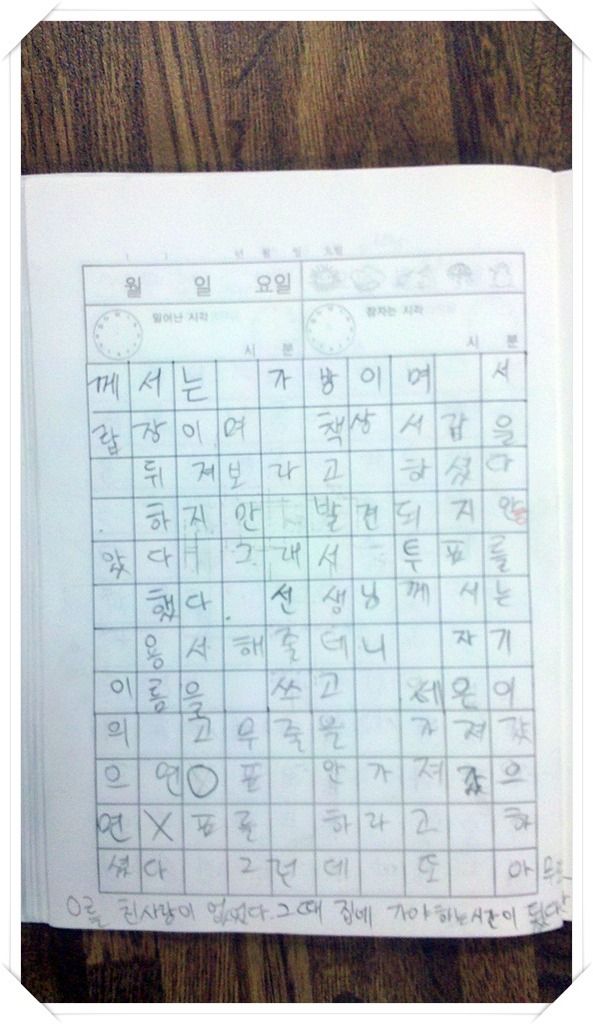 년 월 일 요일
월 일 요일
일어난 시각 잠자는 시각
시 분 시 분
께서는 가방이며 서
랍장이며 책상 서랍을
뒤져보라고 하셨다
. 하지만 발견되지 않
았다 그래서 투표를
했다. 선생님께서는
용서해줄테니 자기
이름을 쓰고 세은이
의 고무줄을 가져갔
으면 ○표 안가져갔으
면 X표를 하라고 하
셨다 그런데 또 아무도
O를 친사람이 없었다. 그때 집에 가야하는시간이 됬다